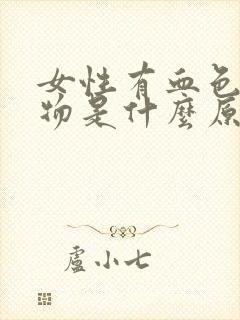 女性有血色
物是什麼原
盧小七